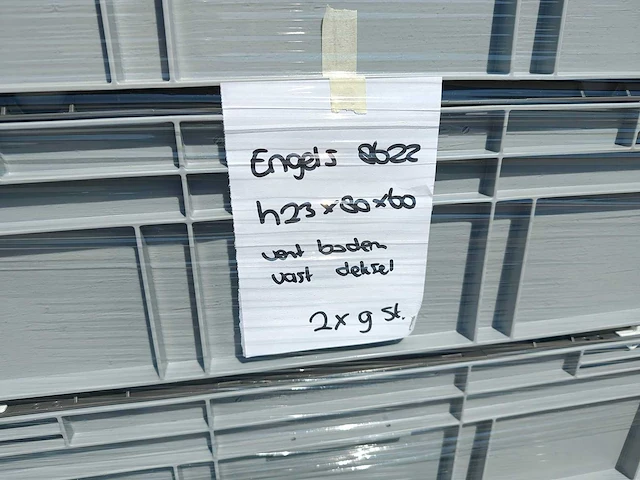 Engels 8622
h23x80x60
vent bodem
vast deksel
2x 9 st.